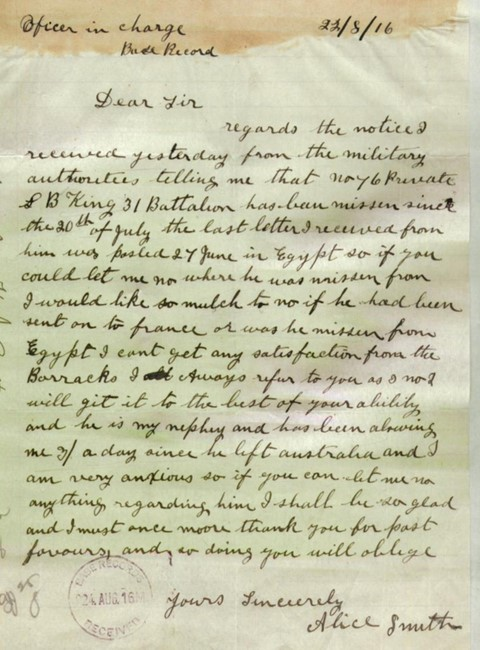 Officer in charge 23/8/16
Base Record
Dear Sir
regards the notice I
received yesterday from the military
authoreties telling me that no 76 Private
S B King 31 Battalion has ban missen since
the 20th of July the last letter I received from
him was posted 27 June in Egypt so if you
could let me no where he was missen from
I would like so mutch to no if he had been
sent on to france or was he missen from
Egypt I cant get any satisfaction from the
Barracks I always refur to you as I no I
will git it to the best of your ability
and he is my nephey and has been alowing
me 3/ a day since he left australia and I
am very anxious so if you can let me no
anything regarding him I shall be so glad
and I must once moore thank you for past
favours, and, so doing you will oblige
Yours Sincerely
Alice Smith
BASE RECORDS
24 AUG. 1916
RECEIVED